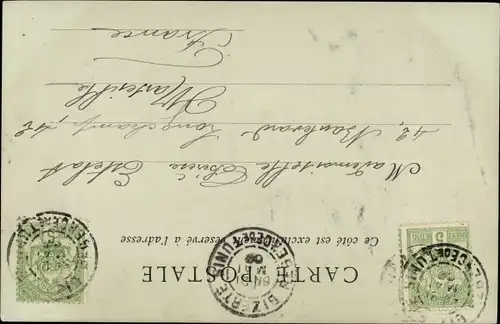 CARTE POSTALE
Ce côté est exclusivement réservé à l'adresse
BIZERTE REGENCE DE TUNIS
Mademoiselle Thérèse
42, Boulevard Longchamp, 42
Marseille
France